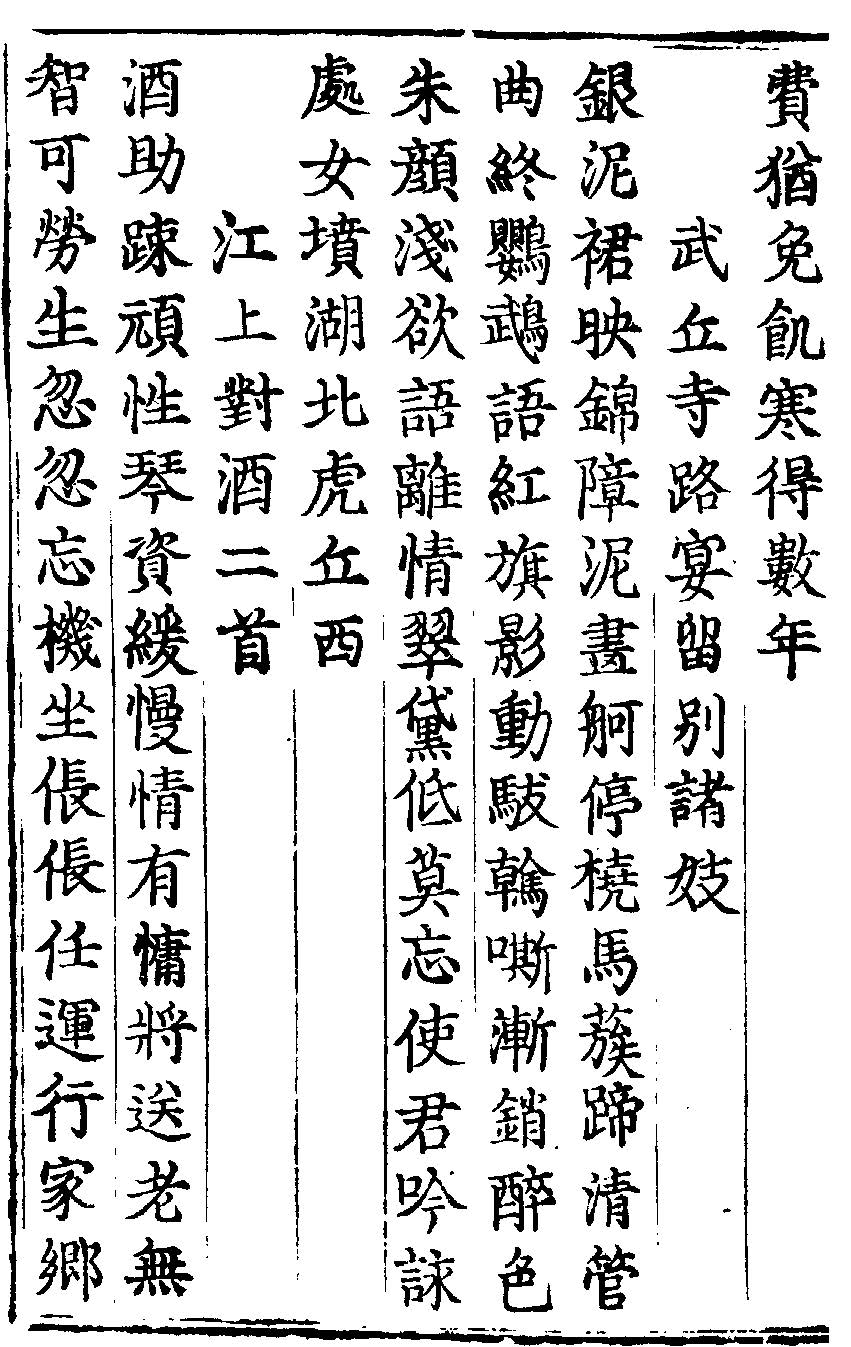 費猶免飢寒得數年
武丘寺路宴留別諸妓
銀泥裙映錦障泥畫舸停橈馬蔟蹄清管
曲終鸚鵡語紅旗影動駊𩥇嘶漸銷醉色
朱顏淺欲語離情翠黛低莫忘使君吟詠
處女墳湖北虎丘西
江上對酒二首
酒助踈頑性琴資緩慢情有慵將送老無
智可勞生忽忽忘機坐倀倀任運行家鄉